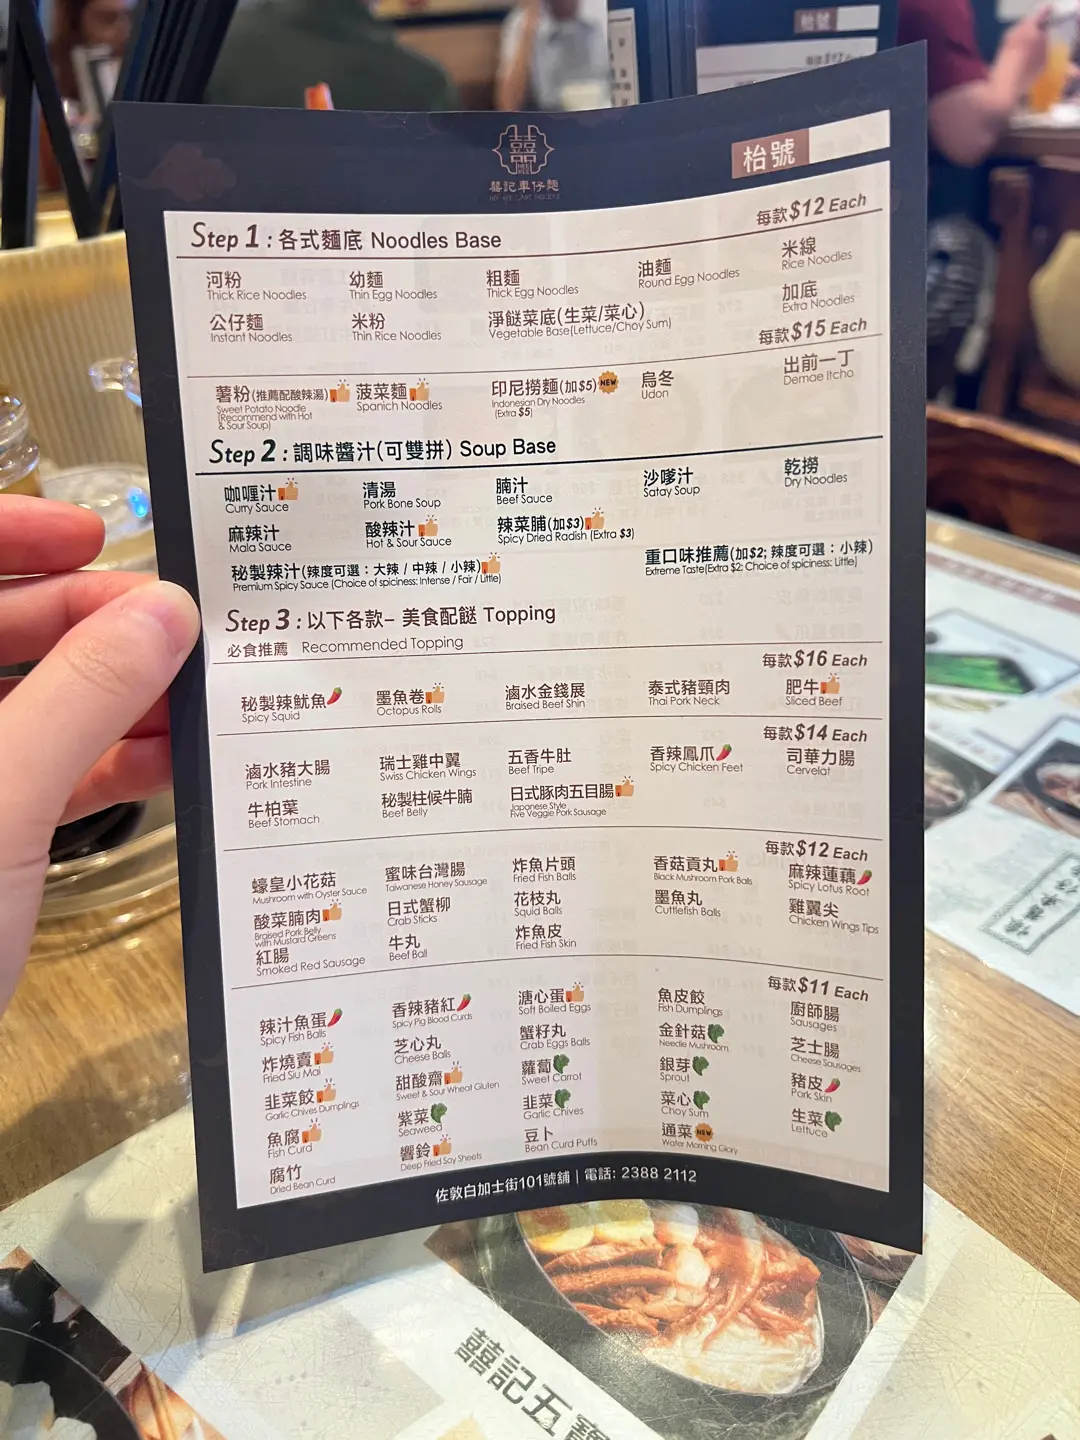 囍記車仔麵
枱號
Step 1 : 各式麵底 Noodles Base
每款$12 Each
河粉 幼麵 粗麵 油麵 米線
Thick Rice Noodles Thin Egg Noodles Thick Egg Noodles Round Egg Noodles Rice Noodles
公仔麵 米粉 淨餸菜底(生菜/菜心) 加底
Instant Noodles Thin Rice Noodles Vegetable Base(Lettuce/Choy Sum) Extra Noodles
每款$15 Each
薯粉(推薦配酸辣湯) 菠菜麵 印尼撈麵(加$5) NEW 烏冬 出前一丁
Sweet Potato Noodle Spanich Noodles Indonesian Dry Noodles Udon Demae Itcho
(Recommend with Hot (Extra $5)
& Sour Soup)
Step 2 : 調味醬汁(可雙拼) Soup Base
咖喱汁 清湯 腩汁 沙嗲汁 乾撈
Curry Sauce Pork Bone Soup Beef Sauce Satay Soup Dry Noodles
麻辣汁 酸辣汁 辣菜脯(加$3)
Mala Sauce Hot & Sour Sauce Spicy Dried Radish (Extra $3)
秘製辣汁(辣度可選：大辣 / 中辣 / 小辣) 重口味推薦(加$2; 辣度可選：小辣)
Premium Spicy Sauce (Choice of spiciness: Intense / Fair / Little) Extreme Taste(Extra $2; Choice of spiciness: Little)
Step 3 : 以下各款– 美食配餸 Topping
必食推薦 Recommended Topping
每款$16 Each
秘製辣魷魚 墨魚卷 滷水金錢展 泰式豬頸肉 肥牛
Spicy Squid Octopus Rolls Braised Beef Shin Thai Pork Neck Sliced Beef
每款$14 Each
滷水豬大腸 瑞士雞中翼 五香牛肚 香辣鳳爪 司華力腸
Pork Intestine Swiss Chicken Wings Beef Tripe Spicy Chicken Feet Cervelat
牛柏葉 秘製柱候牛腩 日式豚肉五目腸
Beef Stomach Beef Belly Japanese Style
Five Veggie Pork Sausage
每款$12 Each
蠔皇小花菇 蜜味台灣腸 炸魚片頭 香菇貢丸 麻辣蓮藕
Mushroom with Oyster Sauce Taiwanese Honey Sausage Fried Fish Balls Black Mushroom Pork Balls Spicy Lotus Root
酸菜腩肉 日式蟹柳 花枝丸 墨魚丸 雞翼尖
Braised Pork Belly Crab Sticks Squid Balls Cuttlefish Balls Chicken Wings Tips
with Mustard Greens
紅腸 牛丸 炸魚皮
Smoked Red Sausage Beef Ball Fried Fish Skin
每款$11 Each
辣汁魚蛋 香辣豬紅 溏心蛋 魚皮餃 廚師腸
Spicy Fish Balls Spicy Pig Blood Curds Soft Boiled Eggs Fish Dumplings Sausages
炸燒賣 芝心丸 蟹籽丸 金針菇 芝士腸
Fried Siu Mai Cheese Balls Crab Eggs Balls Needle Mushroom Cheese Sausages
韭菜餃 甜酸齋 蘿蔔 銀芽 豬皮
Garlic Chives Dumplings Sweet & Sour Wheat Gluten Sweet Carrot Sprout Pork Skin
魚腐 紫菜 韭菜 菜心 生菜
Fish Curd Seaweed Garlic Chives Choy Sum Lettuce
腐竹 響鈴 豆卜 通菜 NEW
Dried Bean Curd Deep Fried Soy Sheets Bean Curd Puffs Water Morning Glory
佐敦白加士街101號舖 | 電話: 2388 2112
囍記五寶
枱號